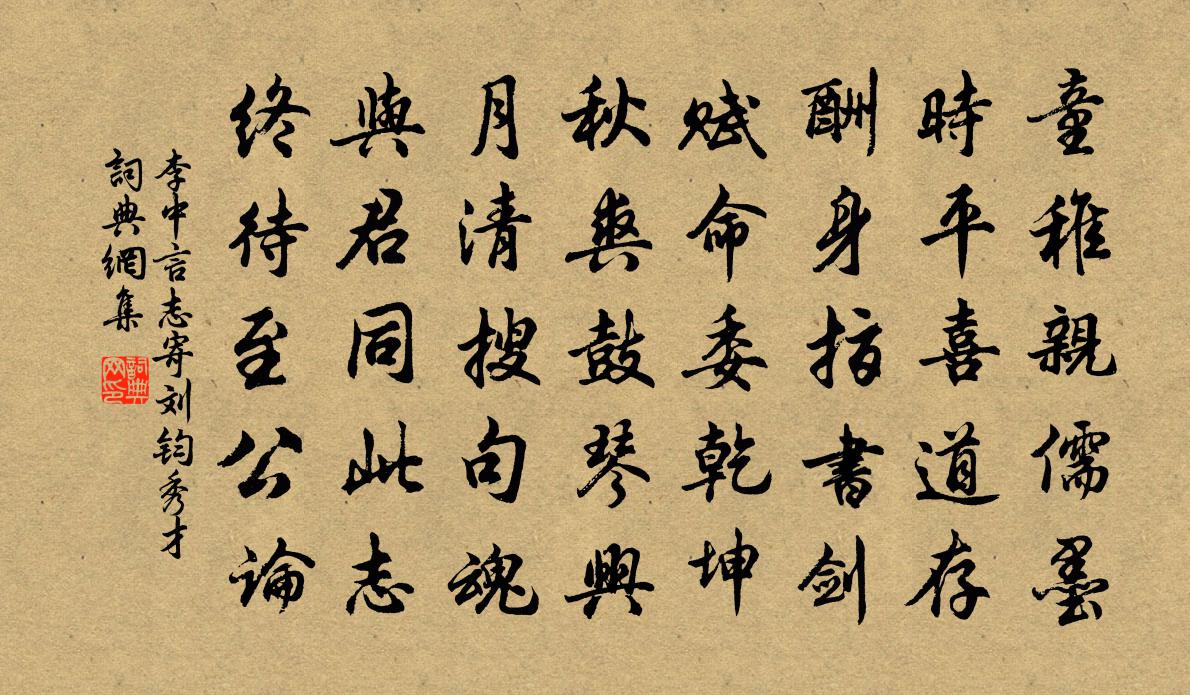 童稚親儒墨
時平喜道存
酬身指書劍
賦命委乾坤
秋爽鼓琴興
月清搜句魂
與君同此志
終待至公論
李中言志寄刘钧秀才
詞典網集
詞典
网印